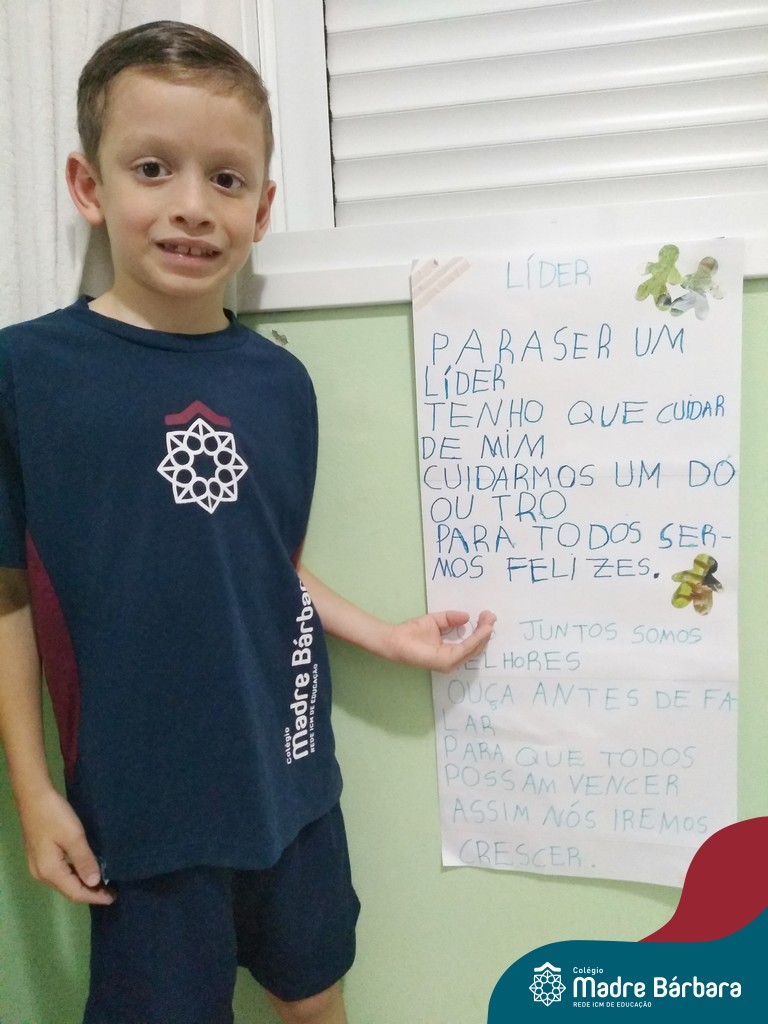 LÍDER
PARA SER UM
LÍDER
TENHO QUE CUIDAR
DE MIM
CUIDARMOS UM DO
OU TRO
PARA TODOS SER-
MOS FELIZES.
JUNTOS SOMOS
ELHORES
OUÇA ANTES DE FA-
LAR
PARA QUE TODOS
POSSAM VENCER
ASSIM NÓS IREMOS
CRESCER.
Colégio
Madre Bárbara
REDE ICM DE EDUCAÇÃO
Colégio
Madre Bárbara
REDE ICM DE EDUCAÇÃO